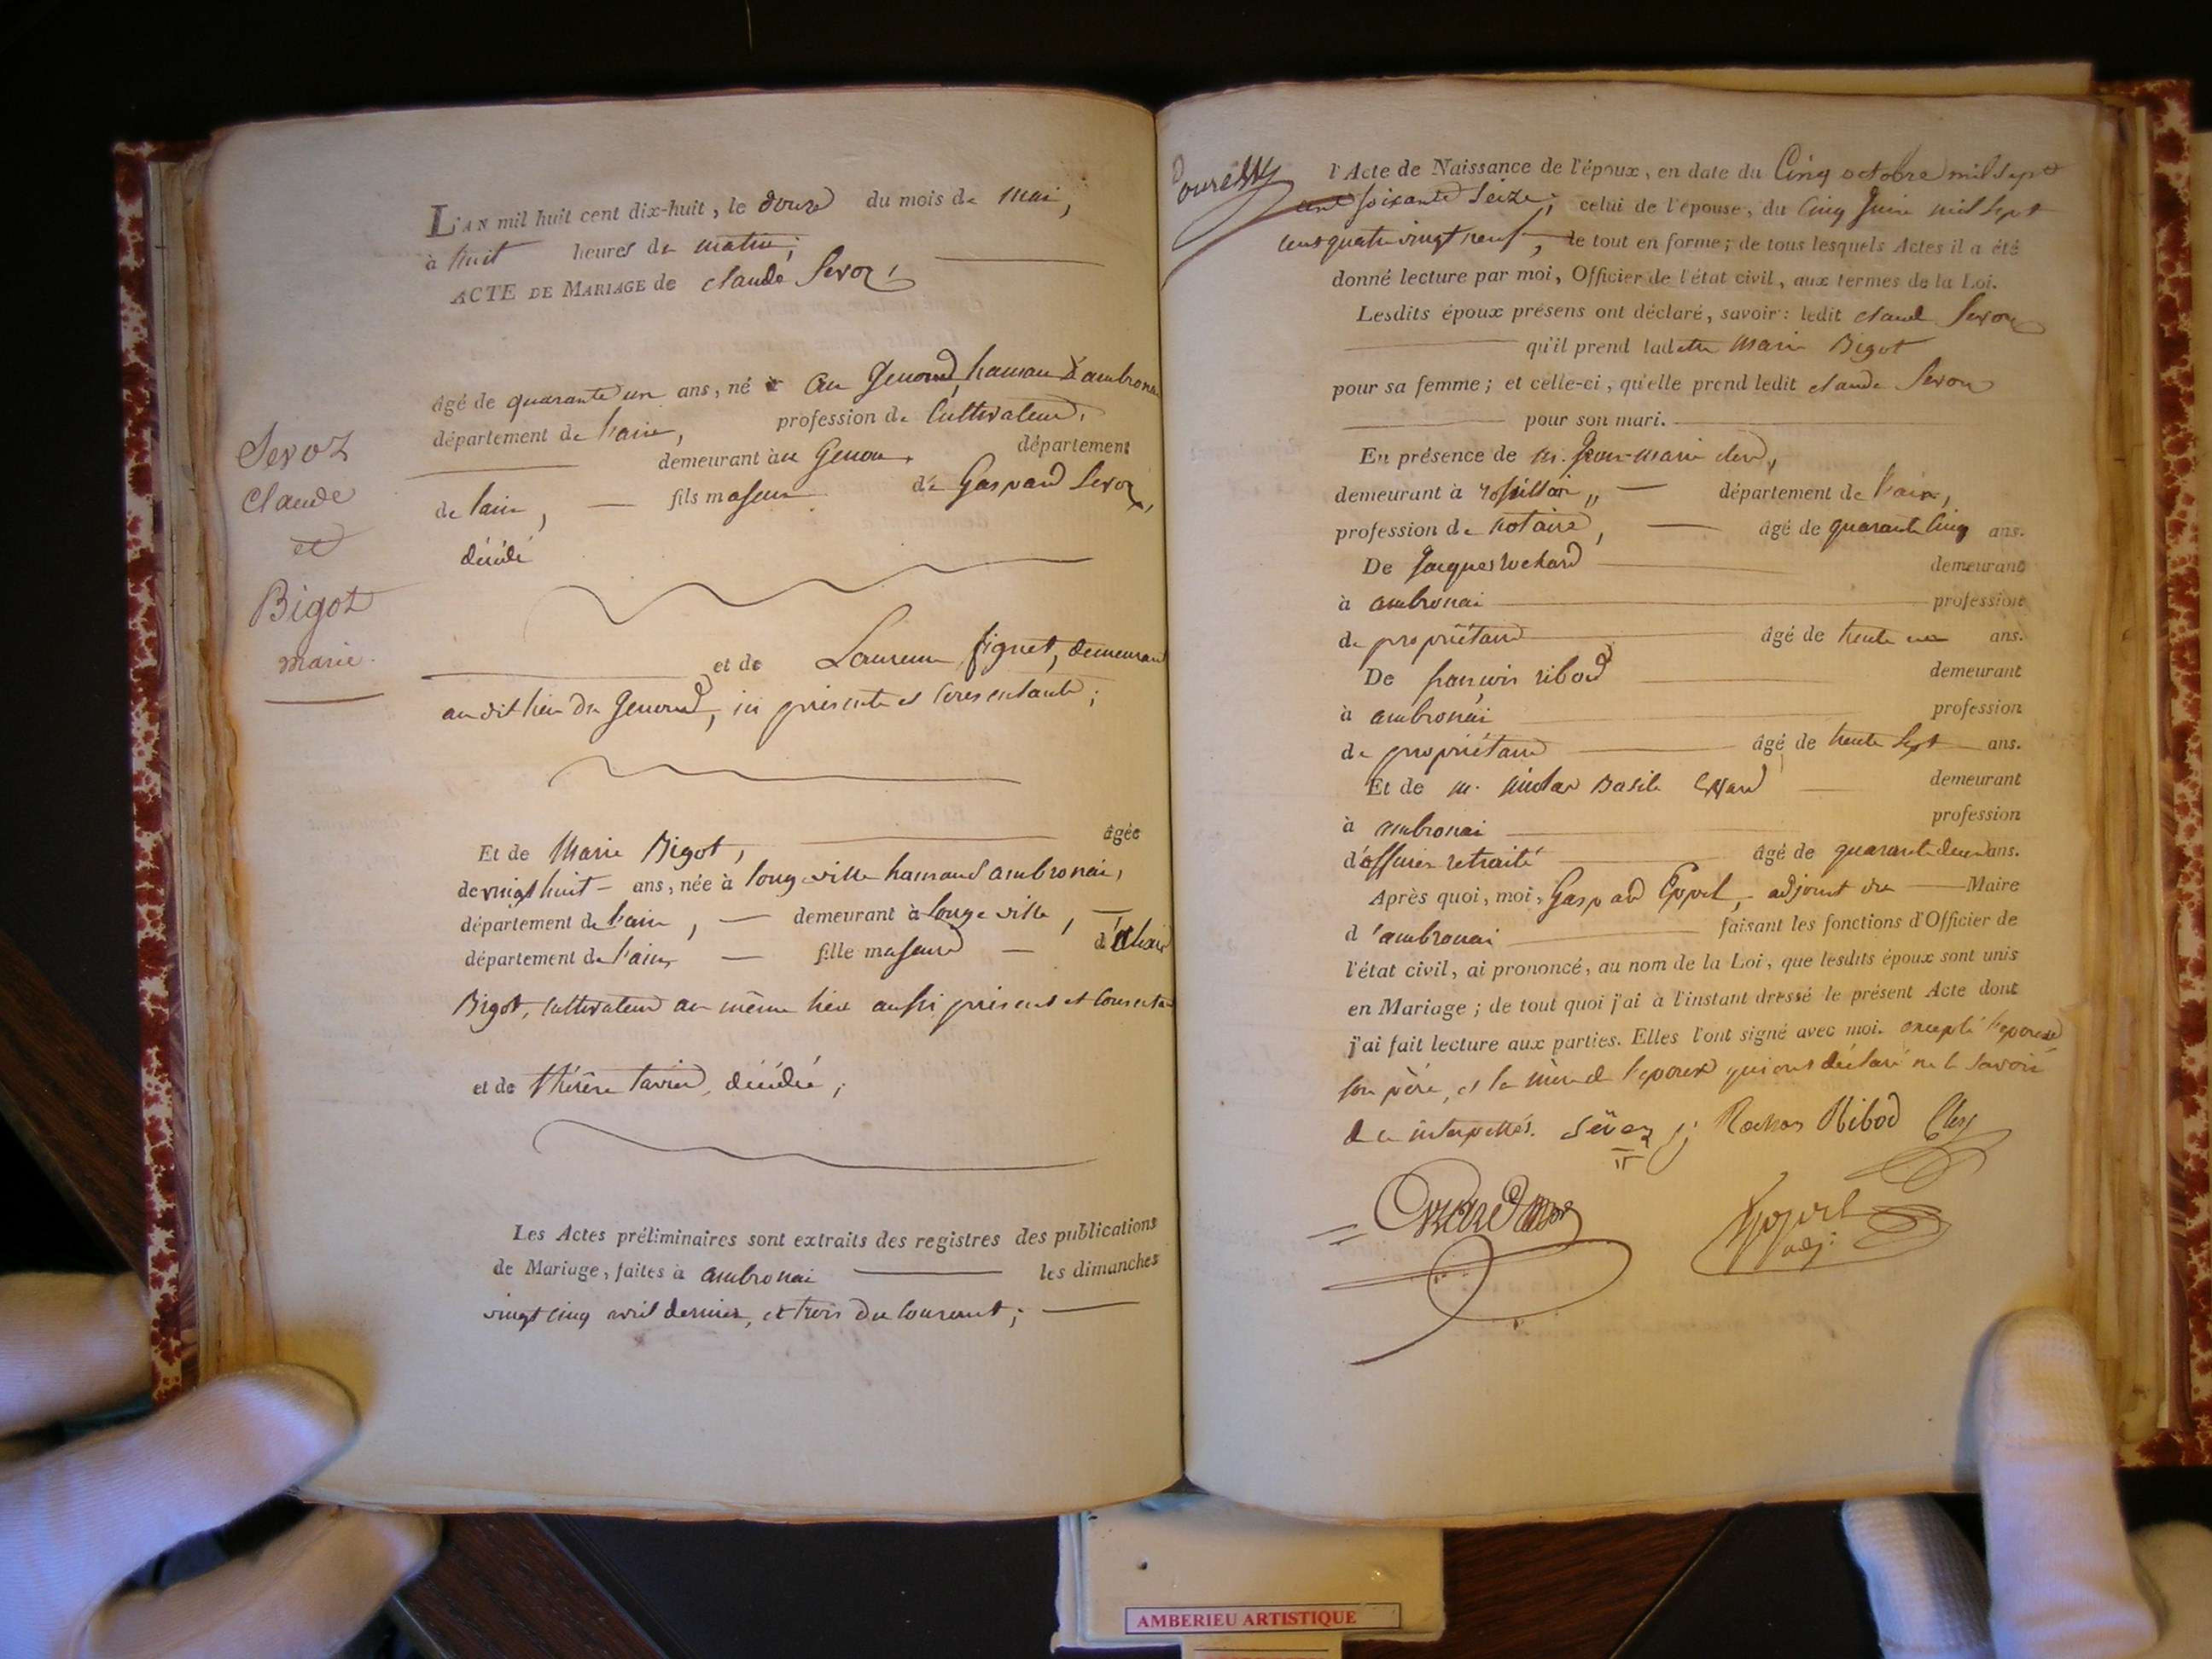 L'AN mil huit cent dix-huit, le douze du mois de mai,
à huit heures du matin;
ACTE DE MARIAGE de claude Sevoz,
âgé de quarante un ans, né au Genoud, hameau d'ambronai
département de l'ain, profession de Cultivateur,
demeurant au Genou, département
de l'ain, fils majeur de Gaspard Sevoz,
décédé
Sevoz
Claude
et
Bigot
marie.
et de Laurence figuet, demeurant
au dit lieu du Genoud, ici présente et Consentante;
Et de Marie Bigot, âgée
de vingt huit ans, née à longeville hameau d'ambronai,
département de l'ain, demeurant à Longeville,
département de l'ain, fille majeure
Bigot, cultivateur au même lieu aussi présent et Consentant
et de thérèse tavier, décédée;
Les Actes préliminaires sont extraits des registres des publications
de Mariage, faites à ambronai les dimanches
vingt cinq avril dernier, et trois du Courant;
l'Acte de Naissance de l'époux, en date du Cinq octobre mil sept
cent soixante Seize; celui de l'épouse, du Cinq Juin mil Sept
cent quatre vingt neuf, le tout en forme; de tous lesquels Actes il a été
donné lecture par moi, Officier de l'état civil, aux termes de la Loi.
Lesdits époux présens ont déclaré, savoir: ledit claude Sevoz
qu'il prend ladette Marie Bigot
pour sa femme; et celle-ci, qu'elle prend ledit claude Sevoz
pour son mari.
En présence de M. Jean-Marie clerc,
demeurant à rossillon, département de l'ain,
profession de notaire, âgé de quarante Cinq ans.
De Jacques rochard demeurant
à ambronai profession
de propriétaire âgé de trente un ans.
De françois ribod demeurant
à ambronai profession
de propriétaire âgé de trente Sept ans.
Et de M. nicolas Basile demeurant
à ambronai profession
d'officier retraité âgé de quarante deux ans.
Après quoi, moi, Gaspard adjoint du Maire
d'ambronai faisant les fonctions d'Officier de
l'état civil, ai prononcé, au nom de la Loi, que lesdits époux sont unis
en Mariage; de tout quoi j'ai à l'instant dressé le présent Acte dont
j'ai fait lecture aux parties. Elles l'ont signé avec moi. excepté l'epouse
son père, et la mère de l'epoux qui ont déclaré ne le Savoir
de ce interpellés. Sevoz j; Rochar Ribod
adj:
AMBERIEU ARTISTIQUE